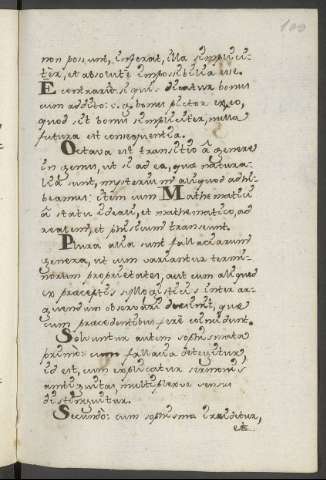 non possunt, inferat, illa simplici-
ter, et absolute impossibilia esse.
E contrario si quis dicatur bonus
cum addito: e. g. bonus pictor ex eo,
quod sit bonus simpliciter, nulla
futura est consequentia.
Octava est transitio a genere
in genus, ut si ad ea, quæ natura-
lia sunt, mysterium aliquod adhi-
beamus: item cum Mathematici
a statu ideali, et mathematico, ad
realem, et phisicum transeunt.
Plura alia sunt fallaciarum
genera, ut cum variantur termi-
norum proprietates, aut cum aliquod
ex præceptis syllogisticis inter ar-
guendum observari desinit, quæ
cum præcedentibus fere coincidunt.
Solvuntur autem sophismata
primo: cum fallacia detegitur,
id est, cum explicatur sermonis
ambiguitas, multiplexve sensus
distinguitur.
Secundo: cum sophisma traditur,